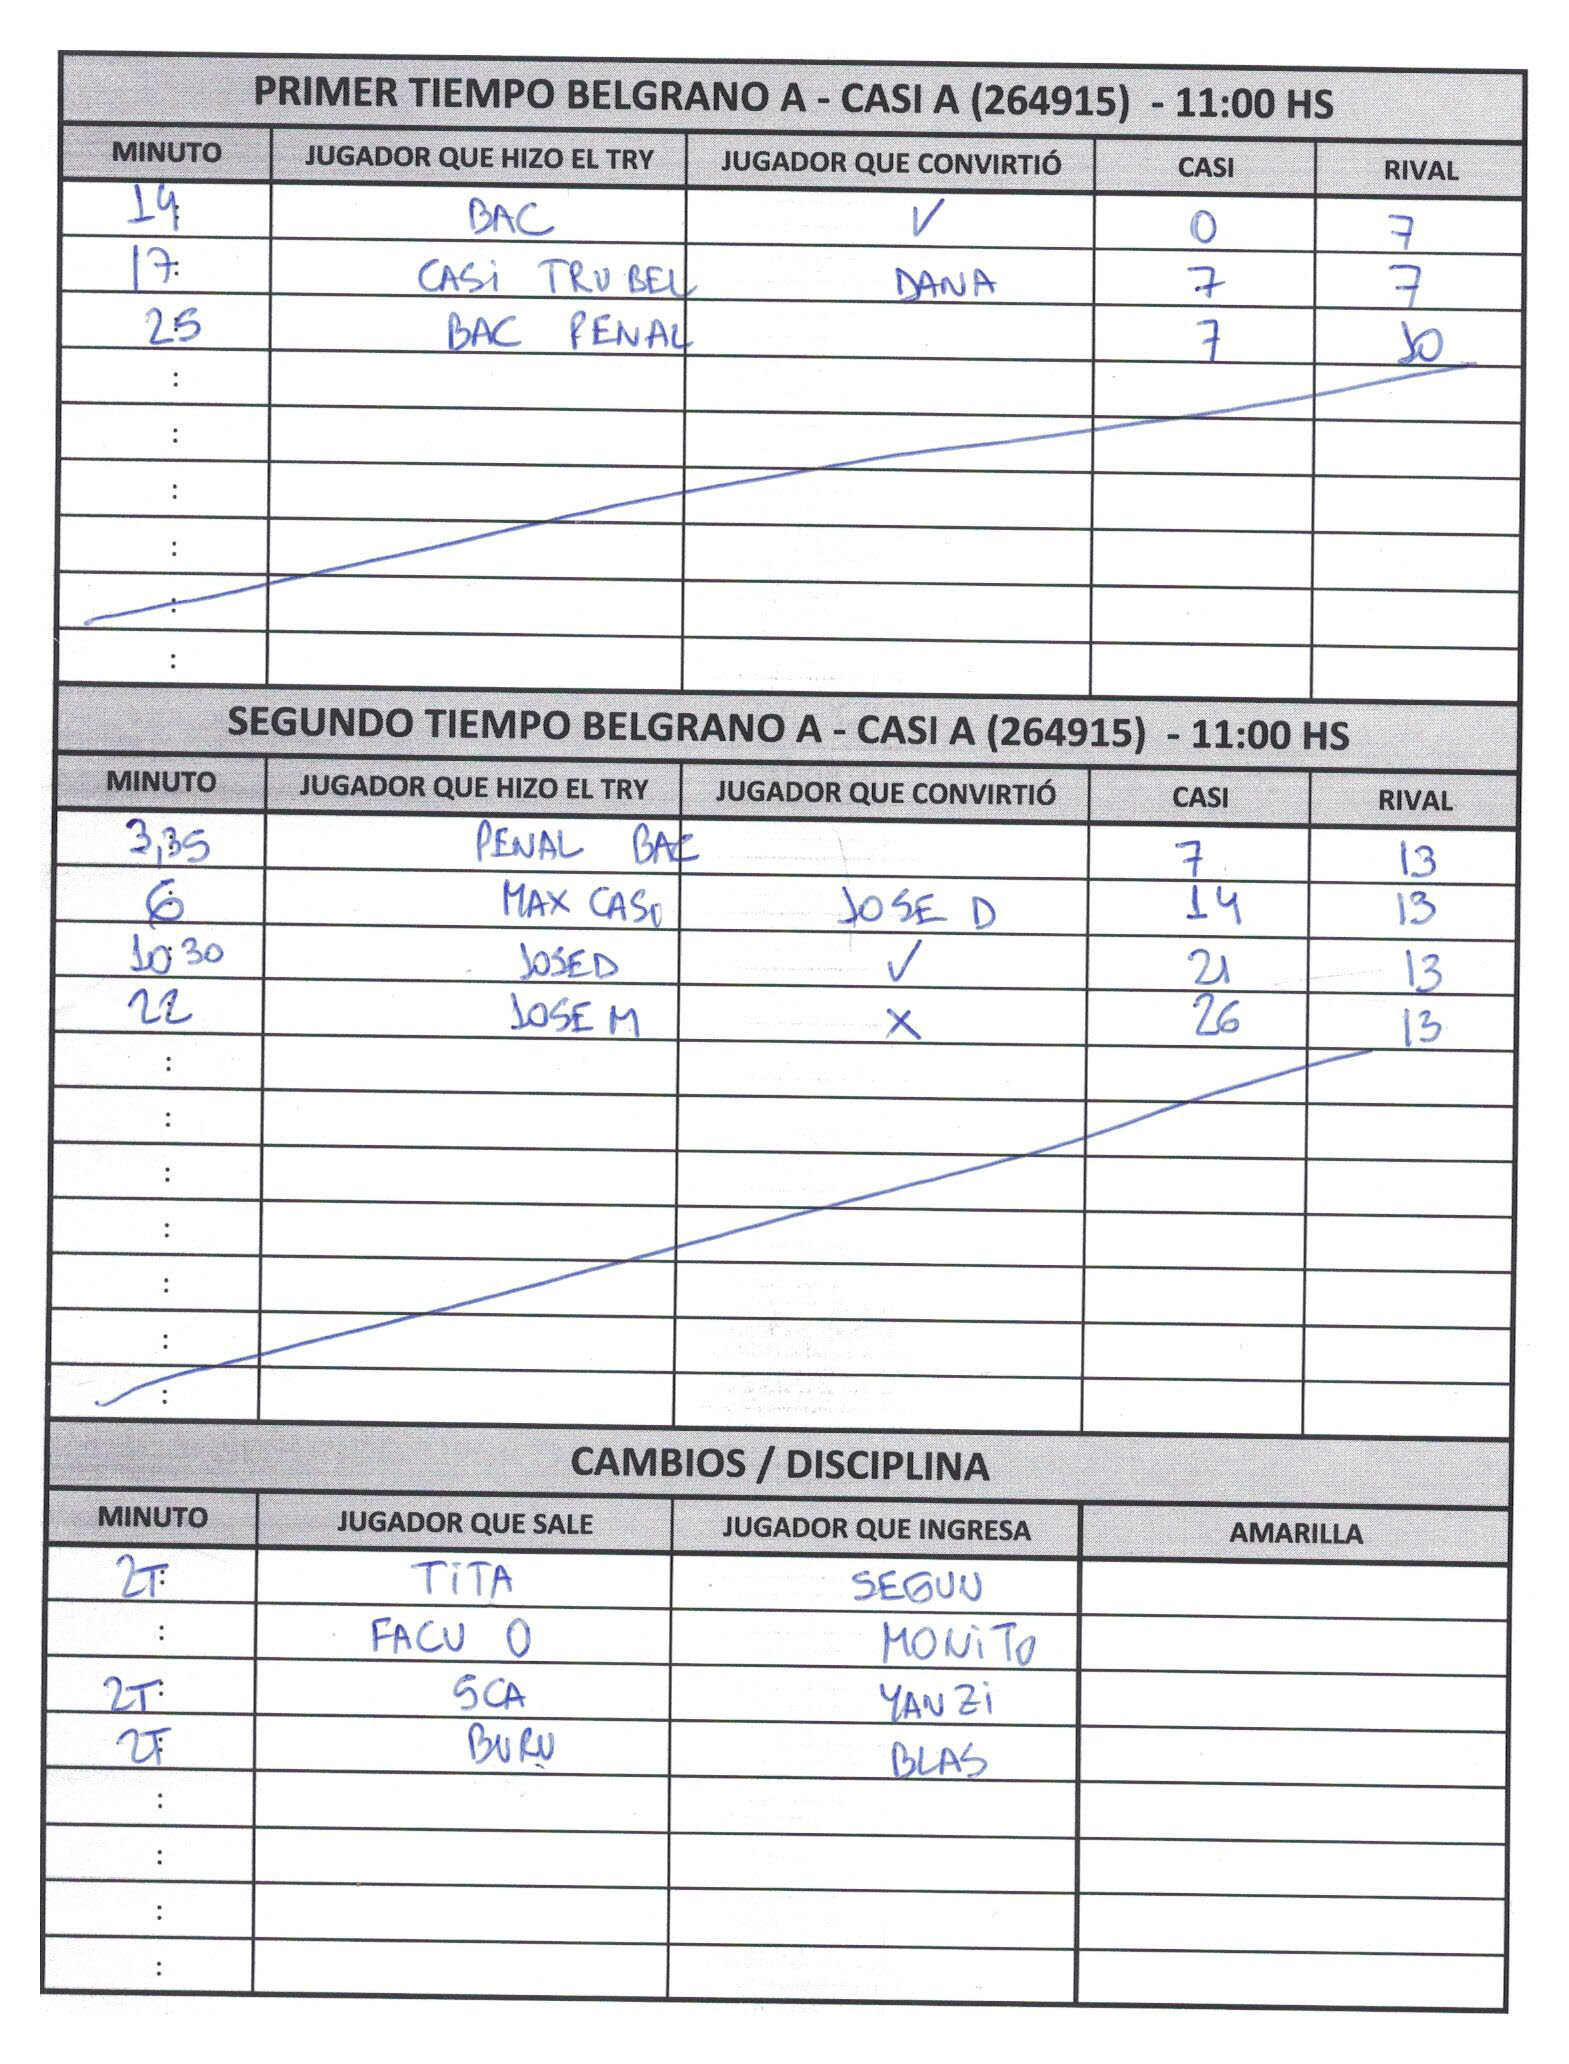 PRIMER TIEMPO BELGRANO A - CASI A (264915) - 11:00 HS
MINUTO JUGADOR QUE HIZO EL TRY JUGADOR QUE CONVIRTIÓ CASI RIVAL
14: BAC ✓ 0 7
17: CASI TRUBEL DANA 7 7
25 BAC PENAL 7 10
:
:
:
:
:
:
SEGUNDO TIEMPO BELGRANO A - CASI A (264915) - 11:00 HS
MINUTO JUGADOR QUE HIZO EL TRY JUGADOR QUE CONVIRTIÓ CASI RIVAL
3,35 PENAL BAC 7 13
6 MAX CASO JOSE D 14 13
10:30 JOSE D ✓ 21 13
22 JOSE M X 26 13
:
:
:
:
:
:
:
CAMBIOS / DISCIPLINA
MINUTO JUGADOR QUE SALE JUGADOR QUE INGRESA AMARILLA
2T: TITA SEGUN
: FACU O MONITO
2T: SCA YANZI
2T: BURU BLAS
:
:
:
: